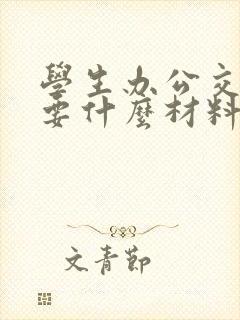 學生办公交
要什麽材料
文青節